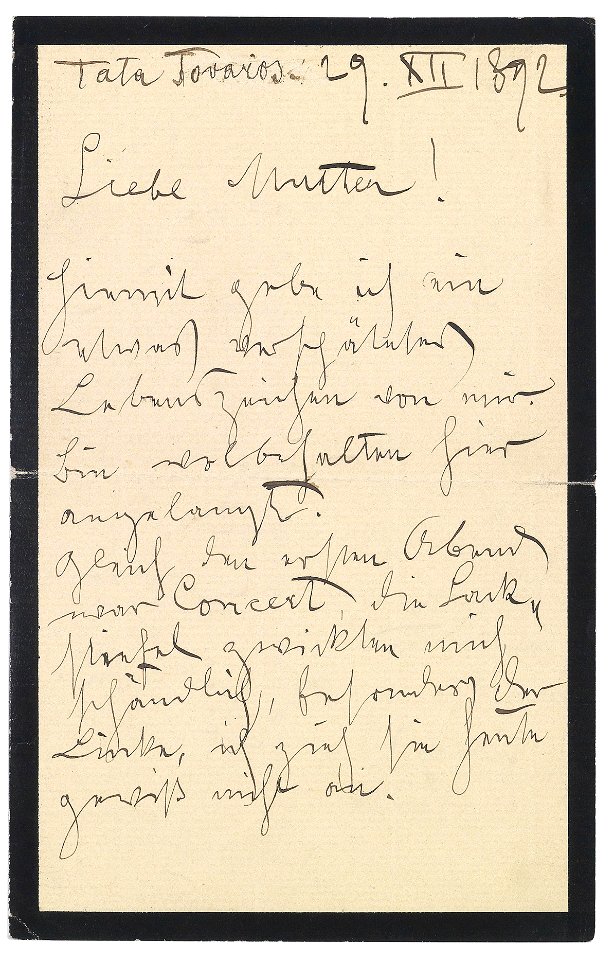 Tata Tovaros. 29. XII 1892.
Liebe Mutter!
hiemit gebe ich ein
etwas verspätetes
Lebenszeichen von mir.
bin wolbehalten hier
angelangt.
gleich den ersten Abend
war Concert, die Lack„
stiefel zwickten mich
schändlich, besonders der
Linke, ich zieh sie heute
gewiß nicht an.